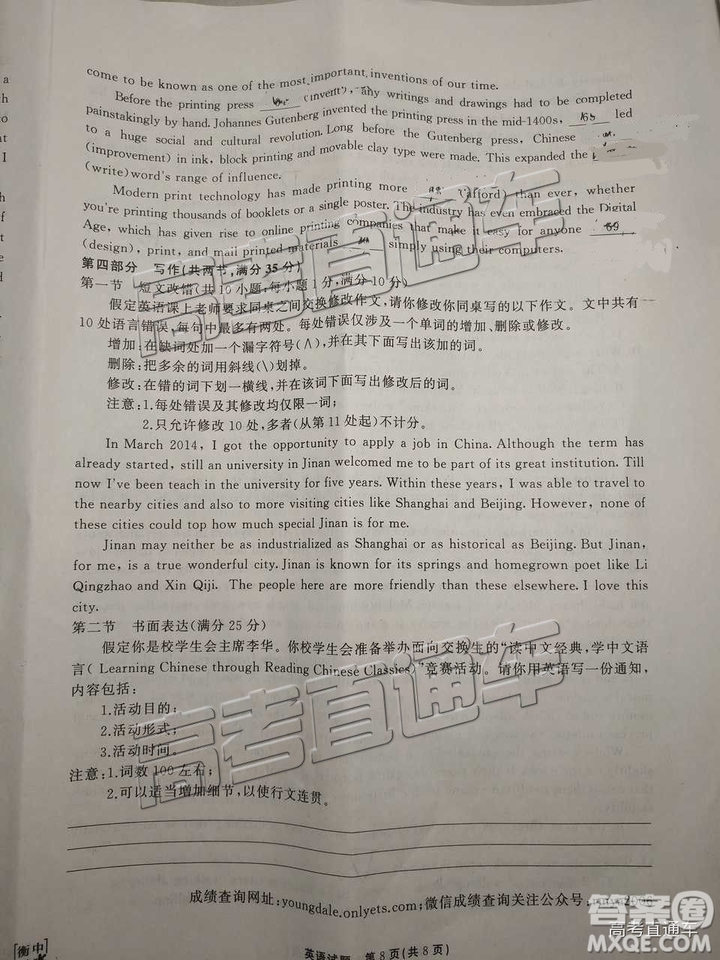 come to be known as one of the most important inventions of our time.
Before the printing press (invent), any writings and drawings had to be completed
painstakingly by hand. Johannes Gutenberg invented the printing press in the mid-1400s, led
to a huge social and cultural revolution. Long before the Gutenberg press, Chinese
(improvement) in ink, block printing and movable clay type were made. This expanded the
(write)word's range of influence.
Modern print technology has made printing more (afford) than ever, whether
you're printing thousands of booklets or a single poster. The industry has even embraced the Digital
Age, which has given rise to online printing companies that make it easy for anyone 69
(design), print, and mail printed materials simply using their computers.
第四部分 写作(共两节,满分35分)
第一节 短文改错(共10小题,每小题1分,满分10分)
假定英语课上老师要求同桌之间交换修改作文,请你修改你同桌写的以下作文。文中共有
10处语言错误,每句中最多有两处。每处错误仅涉及一个单词的增加、删除或修改。
增加:在缺词处加一个漏字符号(∧),并在其下面写出该加的词。
删除:把多余的词用斜线(\)划掉。
修改:在错的词下划一横线,并在该词下面写出修改后的词。
注意:1.每处错误及其修改均仅限一词;
2.只允许修改10处,多者(从第11处起)不计分。
In March 2014, I got the opportunity to apply a job in China. Although the term has
already started, still an university in Jinan welcomed me to be part of its great institution. Till
now I've been teach in the university for five years. Within these years, I was able to travel to
the nearby cities and also to more visiting cities like Shanghai and Beijing. However, none of
these cities could top how much special Jinan is for me.
Jinan may neither be as industrialized as Shanghai or as historical as Beijing. But Jinan,
for me, is a true wonderful city. Jinan is known for its springs and homegrown poet like Li
Qingzhao and Xin Qiji. The people here are more friendly than these elsewhere. I love this
city.
第二节 书面表达(满分25分)
假定你是校学生会主席李华。你校学生会准备举办面向交换生的“读中文经典,学中文语
言( Learning Chinese through Reading Chinese Classics)”竞赛活动。请你用英语写一份通知,
内容包括:
1.活动目的;
2.活动形式;
3.活动时间。
注意:1.词数100左右;
2.可以适当增加细节,以使行文连贯。
成绩查询网址:youngdale.onlyets.com;微信成绩查询关注公众号:
英语试题 第8页(共8页)
[衡中
高考直通车
高考直通车
答案圈
高考直通车
MXQE.COM